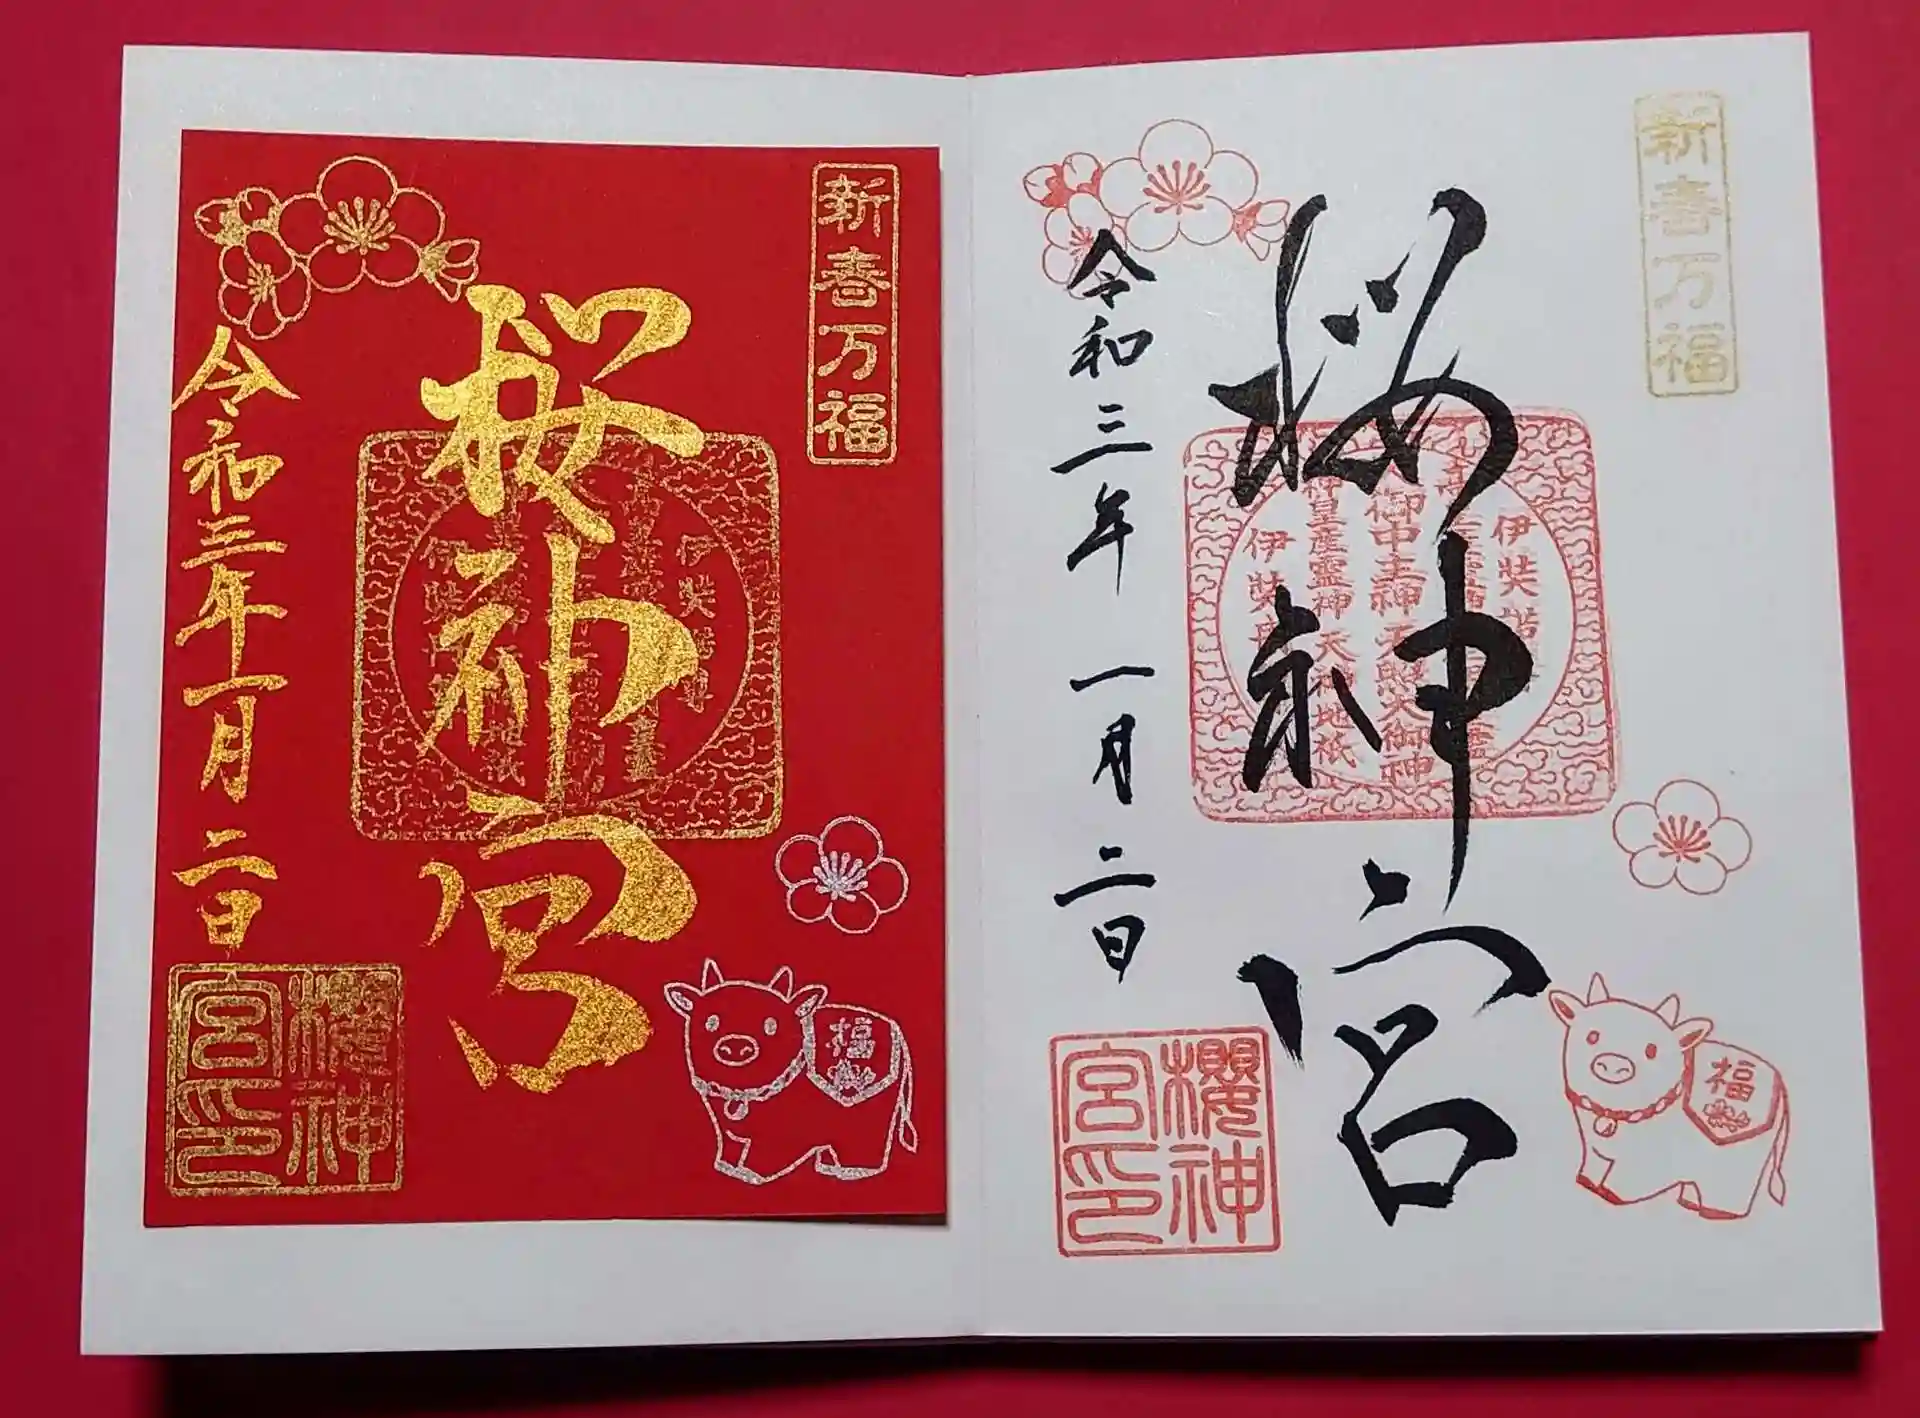 新春万福
桜神宮
令和三年一月二日
櫻神
宮印
福
新春万福
桜神宮
令和三年一月二日
櫻神
宮印
福
伊奘諾
御中主神 天照大御神
神皇産霊神 天神地祇
伊奘